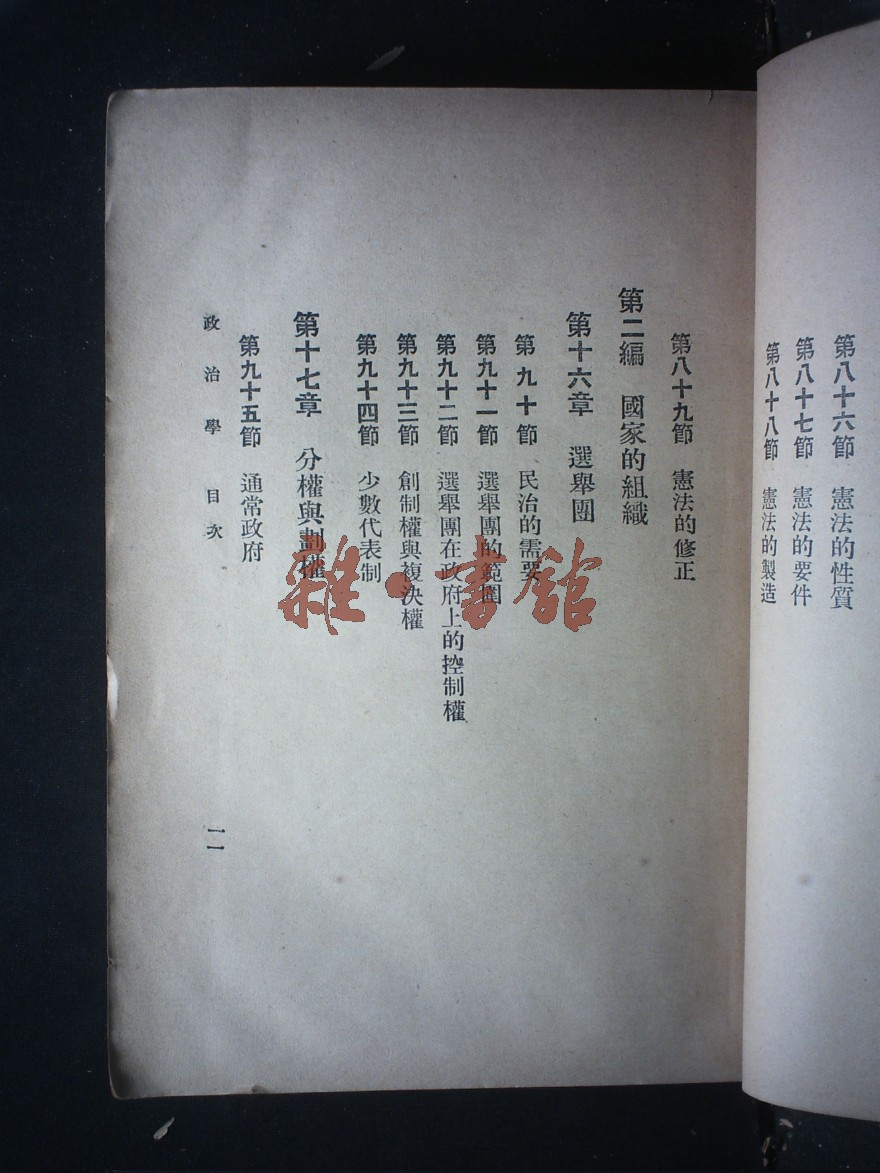 第八十六節　憲法的性質
第八十七節　憲法的要件
第八十八節　憲法的製造
第八十九節　憲法的修正
第二編　國家的組織
第十六章　選舉團
第九十節　民治的需要
第九十一節　選舉團的範圍
第九十二節　選舉團在政府上的控制權
第九十三節　創制權與複決權
第九十四節　少數代表制
第十七章　分權與劃權
第九十五節　通常政府
政治學　目次
一一
雜·書館